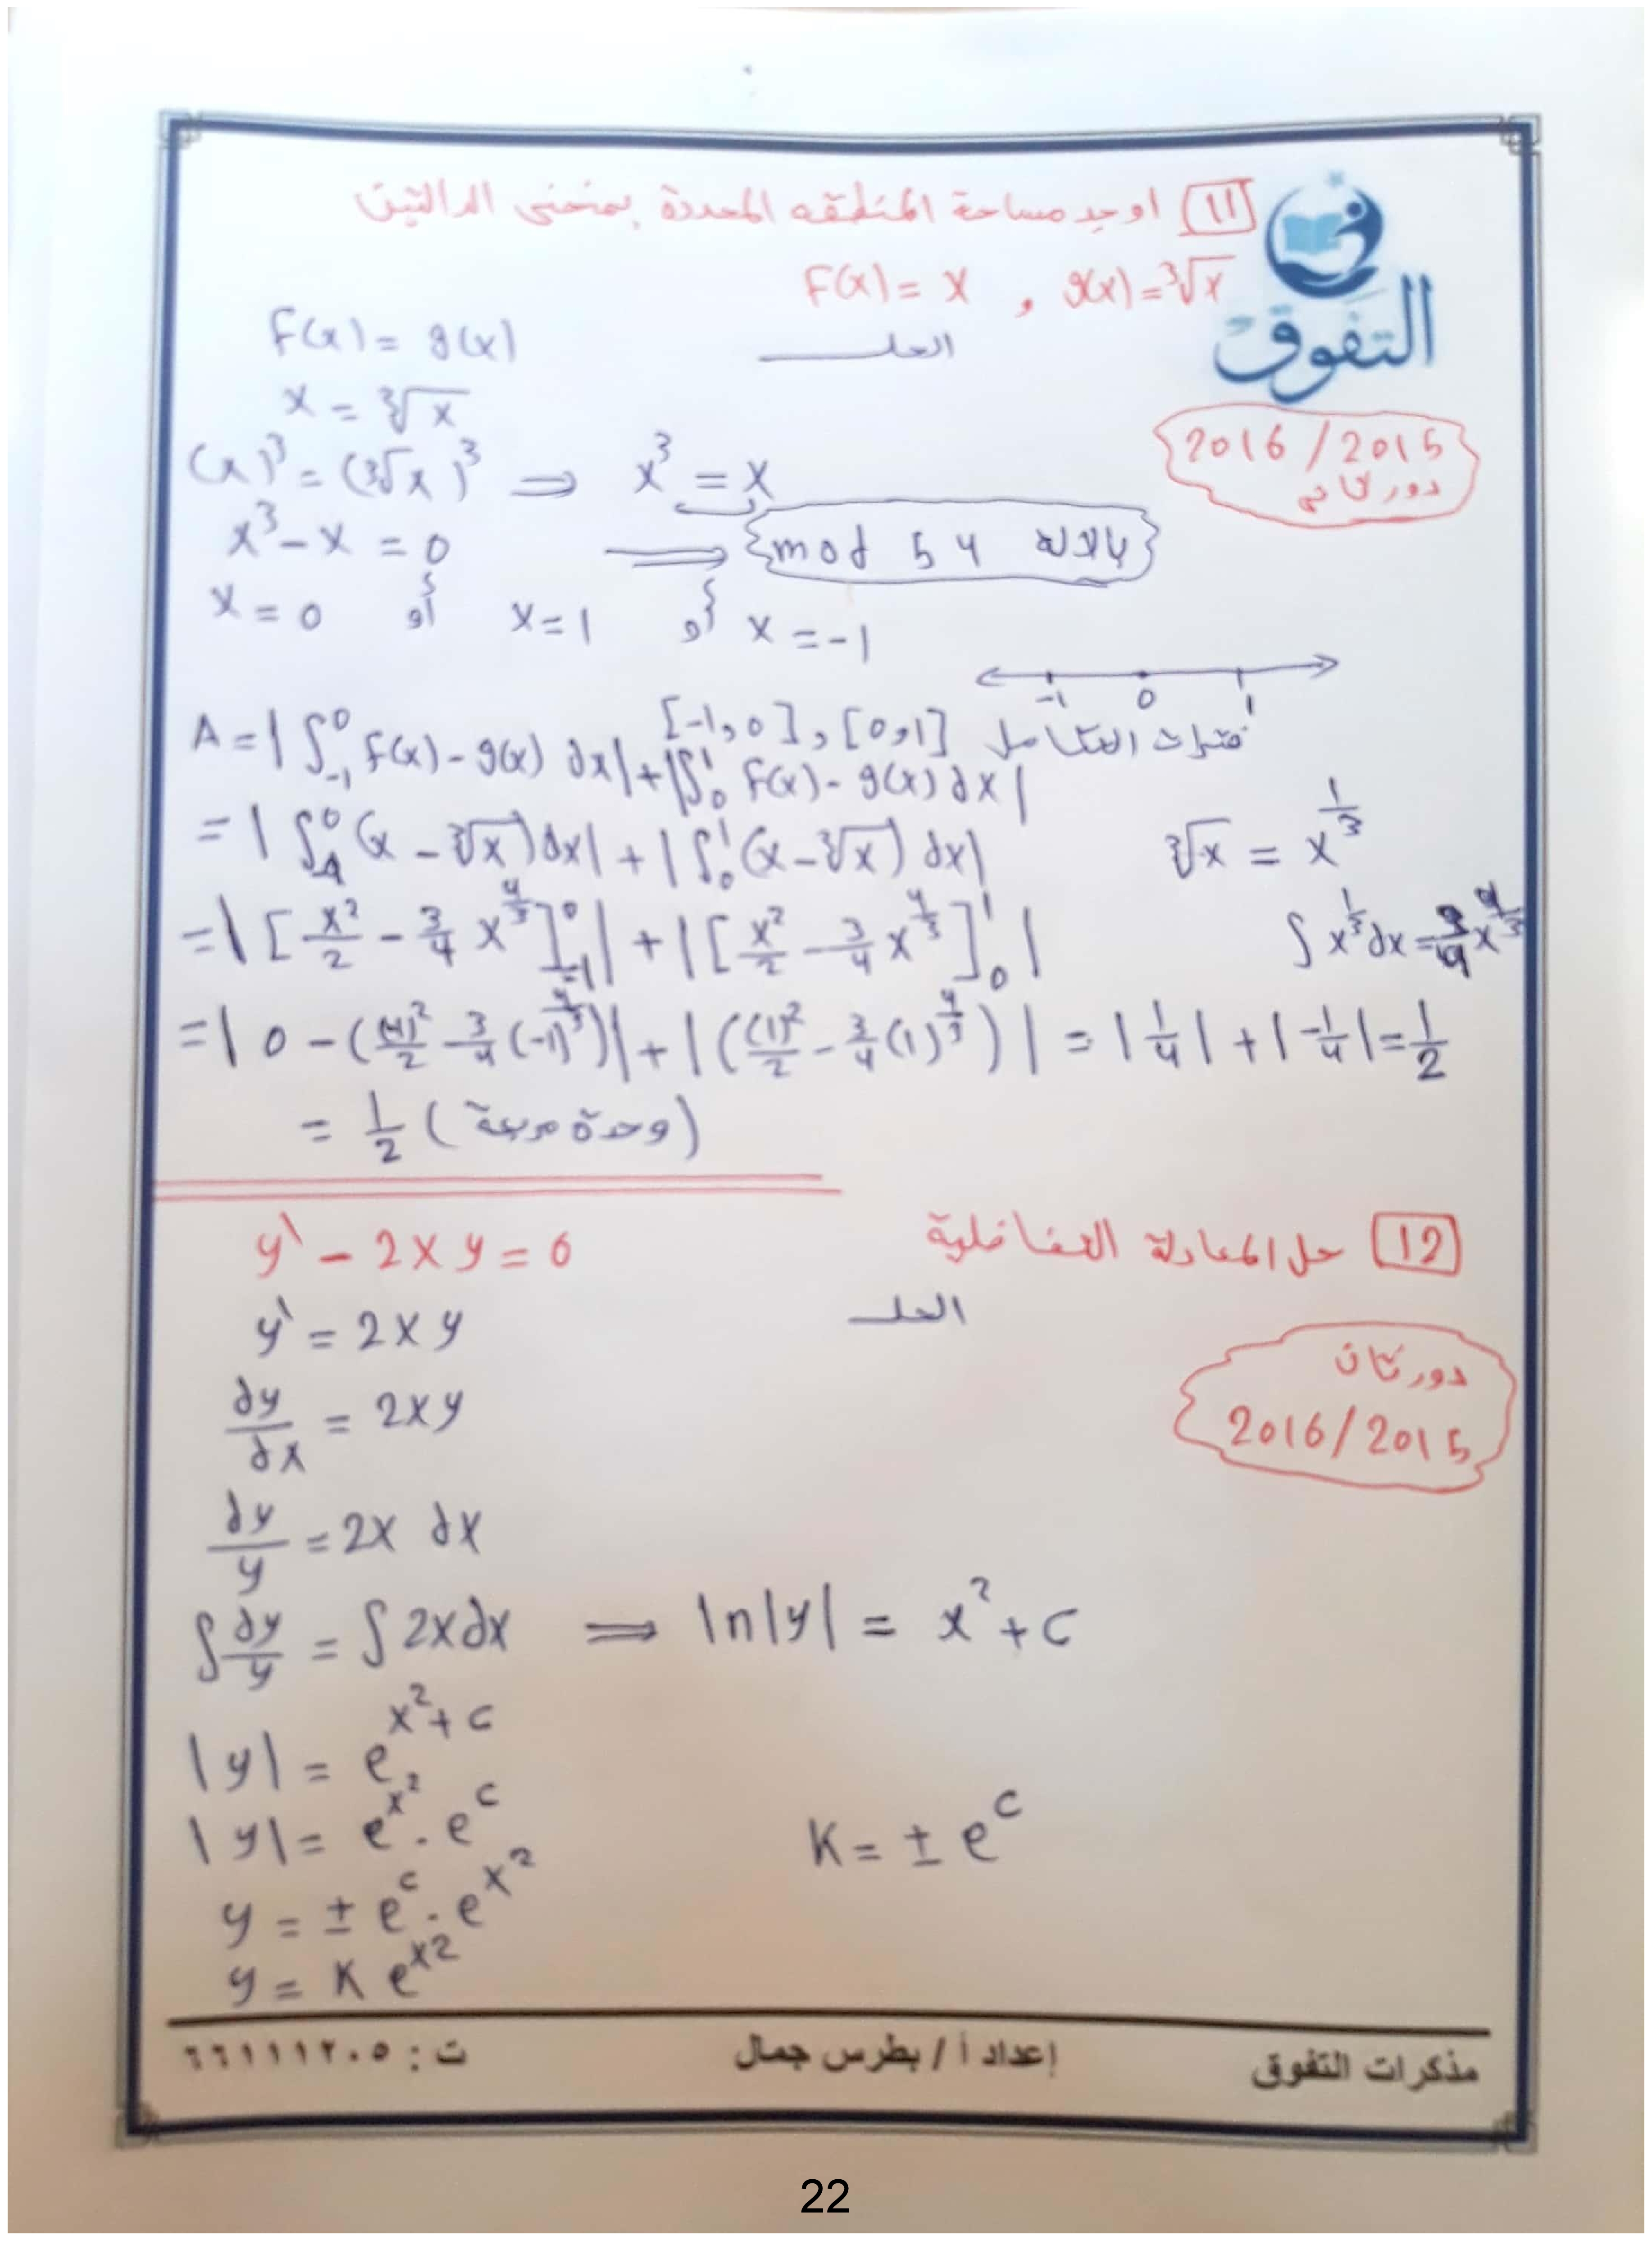 11 اوجد مساحة المنطقه المحددة بمنحنى الدالتين
F(x) = x , g(x) = ∛x
التفوق
الحل
F(x) = g(x)
x = ∛x
2016/2015
دور ثاني
(x)³ = (∛x)³ ⇒ x³ = x
x³ - x = 0 ⟹ mod 5 4 بالآلة
x = 0 أو x = 1 أو x = -1
-1 0 1
[-1,0] , [0,1] فترات التكامل
A = |∫₋₁⁰ f(x) - g(x) dx| + |∫₀¹ f(x) - g(x) dx|
= |∫₋₁⁰ (x - ∛x) dx| + |∫₀¹ (x - ∛x) dx|
∛x = x^(1/3)
= |[x²/2 - 3/4 x^(4/3)]₋₁⁰| + |[x²/2 - 3/4 x^(4/3)]₀¹|
∫ x^(1/3) dx = 3/4 x^(4/3)
= | 0 - ((-1)²/2 - 3/4 (-1)^(4/3))| + |((1)²/2 - 3/4 (1)^(4/3))| = |1/4| + |-1/4| = 1/2
= 1/2 (وحدة مربعة)
12 حل المعادلة التفاضلية
y' - 2xy = 0
الحل
y' = 2xy
دور ثان
2016/2015
dy/dx = 2xy
dy/y = 2x dx
∫ dy/y = ∫ 2x dx ⇒ ln|y| = x² + c
|y| = e^(x²+c)
|y| = e^(x²) . e^c
K = ± e^c
y = ± e^c . e^(x²)
y = K e^(x2)
مذكرات التفوق
إعداد أ / بطرس جمال
ت : ٦٦١١١٢٠٥
22